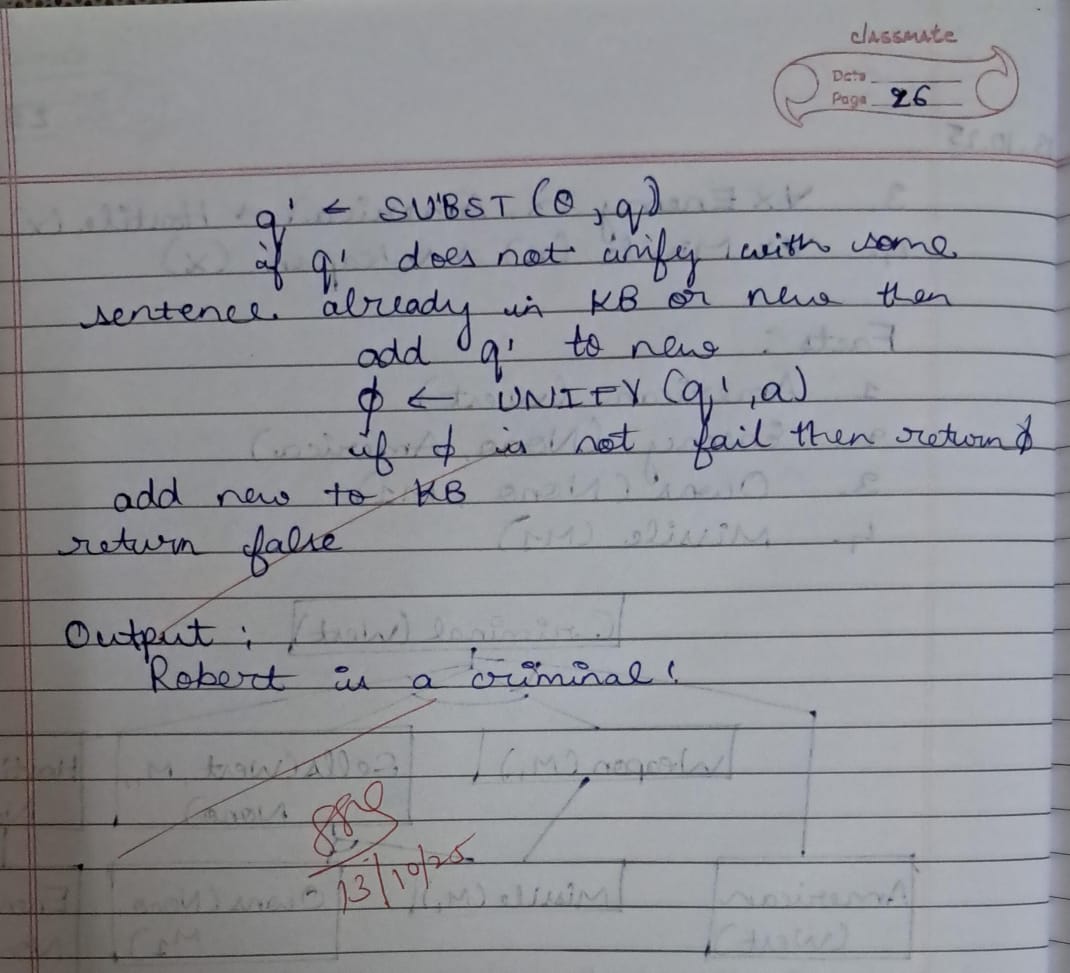 classmate
Date
Page 26
q' ← SUBST (θ, q)
if q' does not unify with some
sentence already in KB or new then
add q' to new
φ ← UNIFY (q', a)
if φ is not fail then return φ
add new to KB
return false
Output :
Robert is a criminal!
13/10/25